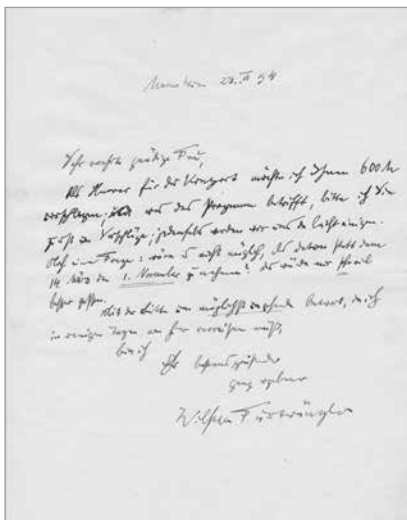 Sehr verehrte gnädige Frau,
Als Honorar für das Konzert möchte ich Ihnen 600 M
vorschlagen; was das Programm betrifft, bitte ich Sie
Vorschläge; jedenfalls werden wir uns da leicht einigen.
Noch eine Frage: wäre es nicht möglich, das Datum statt dem
14. März den 1. November zu nehmen? Es würde mir
besser passen.
Mit der Bitte um möglichst umgehende Antwort, da ich
in wenigen Tagen verreisen muß,
bin ich
Ihr
ganz ergebener
Wilhelm Furtwängler